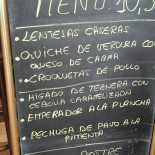 MENÚ 10,5
- LENTEJAS CASERAS
- QUICHE DE VERDURA CON
QUESO DE CABRA
- CROQUETAS DE POLLO
- HIGADO DE TERNERA CON
CEBOLLA CARAMELIZADA
- EMPERADOR A LA PLANCHA
- PECHUGA DE PAVO A LA
PIMIENTA
POSTRE